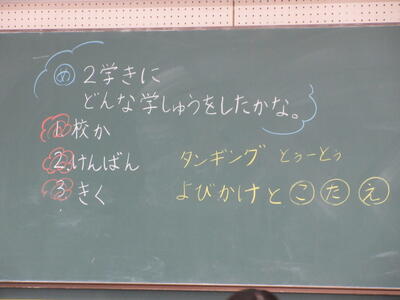 め 2学きに
どんな学しゅうをしたかな。
1.校か
2.けんばん タンギング とぅーとぅ
3.きく よびかけとこたえ